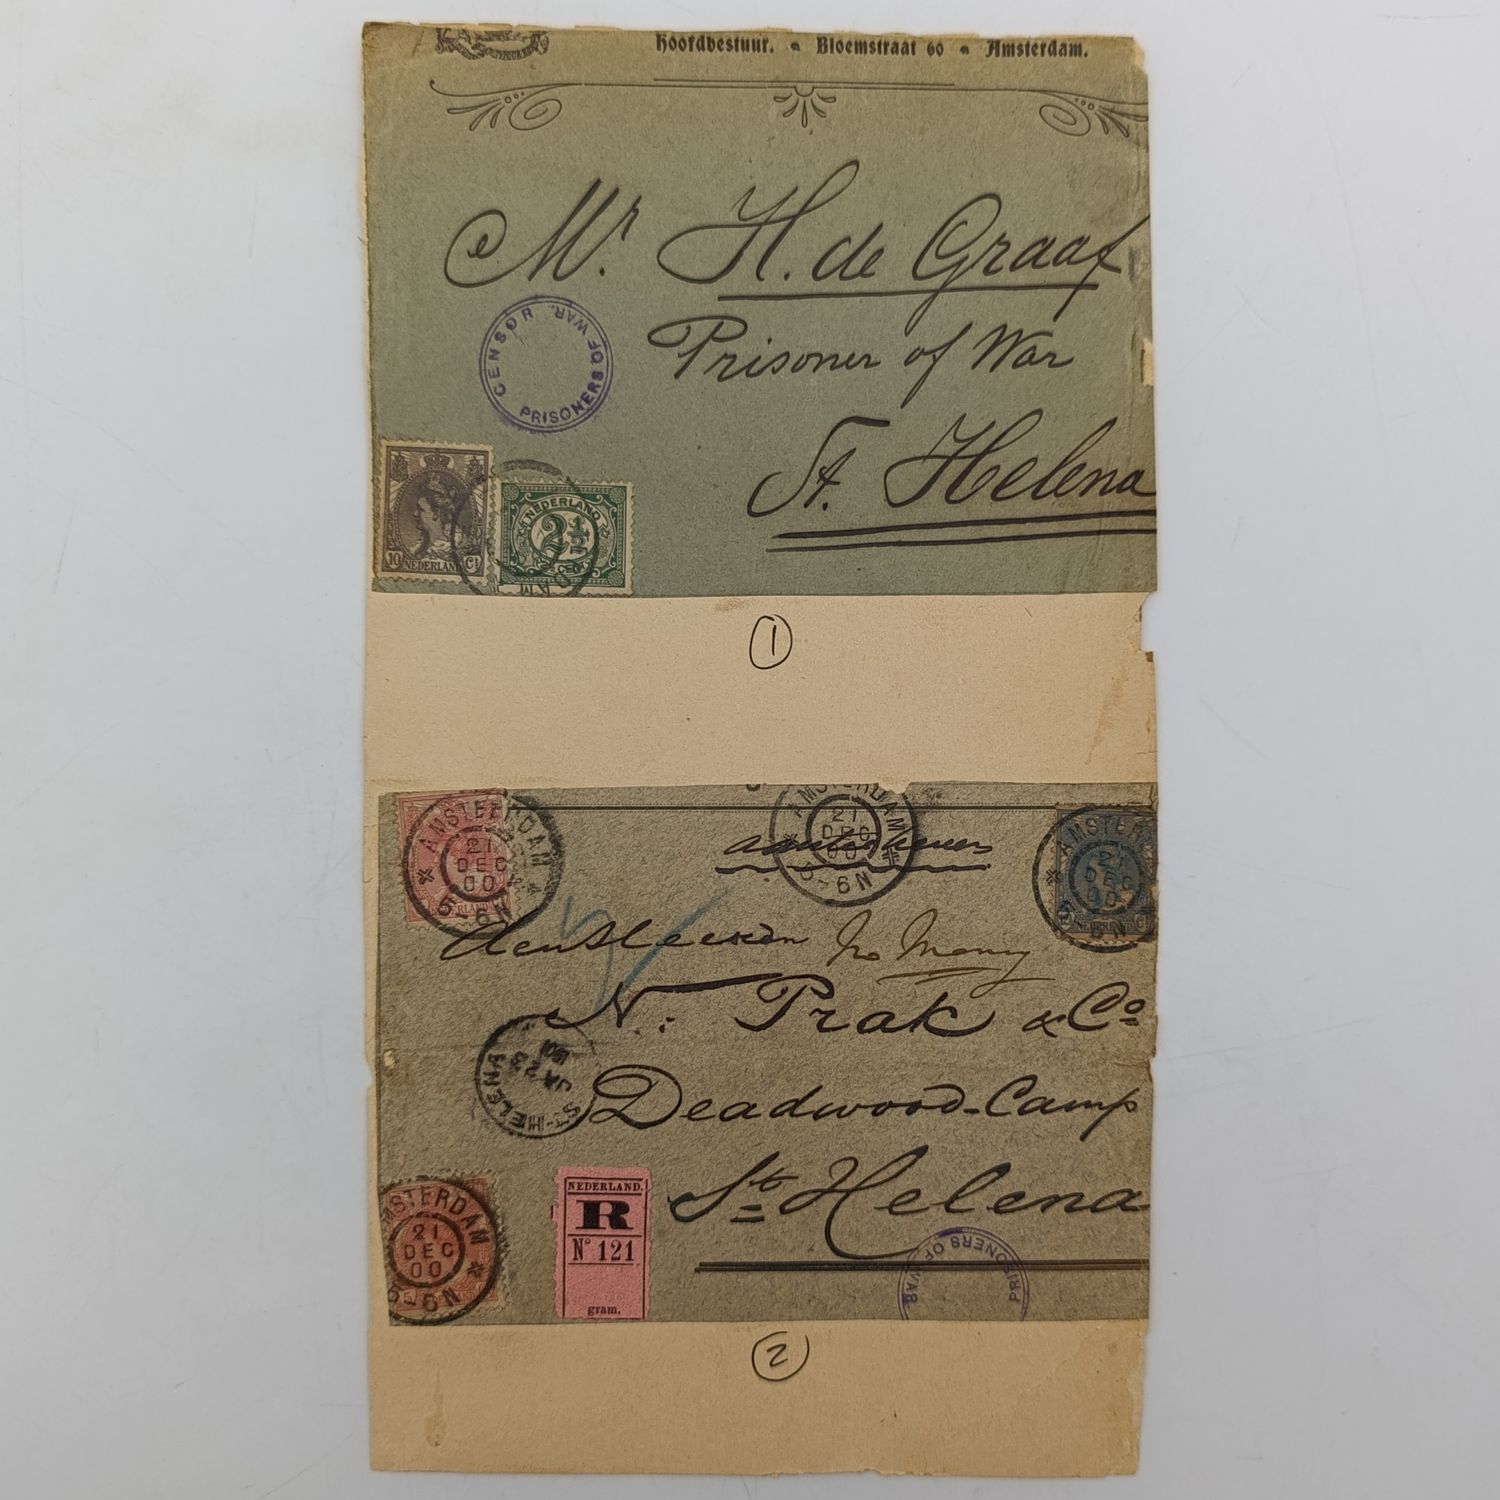 Hoofdbestuur. Bloemstraat 60 Amsterdam.
Mr. H. de Graaf
CENSOR
PRISONERS OF WAR.
Prisoner of War
St. Helena
10 NEDERLAND Ct
NEDERLAND
2½
CENT
AM
1
AMSTERDAM
21
DEC
00
5-6N
AMSTERDAM
21
DEC
00
5-6N
AMSTERDAM
21
DEC
00
NEDERLAND
No Money
N: Prak & Co
ST. HELENA
JA 23
1901
Deadwood-Camp
St Helena
AMSTERDAM
21
DEC
00
5-6N
NEDERLAND.
R
No 121
gram.
PRISONERS OF WAR.
2